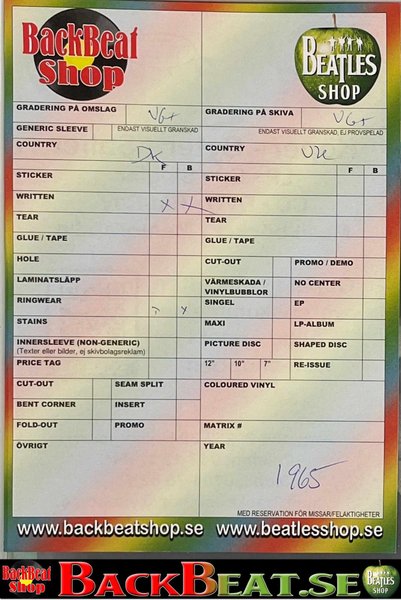 BackBeat Shop
BEATLES SHOP
GRADERING PÅ OMSLAG VG+
GRADERING PÅ SKIVA VG+
GENERIC SLEEVE
ENDAST VISUELLT GRANSKAD
ENDAST VISUELLT GRANSKAD, EJ PROVSPELAD
COUNTRY DK
COUNTRY UK
F B
F B
STICKER
STICKER
WRITTEN X X
WRITTEN
TEAR
TEAR
GLUE / TAPE
GLUE / TAPE
HOLE
CUT-OUT
PROMO / DEMO
LAMINATSLÄPP
VÄRMESKADA / VINYLBUBBLOR
NO CENTER
RINGWEAR x
SINGEL
EP
STAINS
MAXI
LP-ALBUM
INNERSLEEVE (NON-GENERIC)
(Texter eller bilder, ej skivbolagsreklam)
PICTURE DISC
SHAPED DISC
PRICE TAG
12" 10" 7"
RE-ISSUE
CUT-OUT
SEAM SPLIT
COLOURED VINYL
BENT CORNER
INSERT
FOLD-OUT
PROMO
MATRIX #
ÖVRIGT
YEAR
1965
MED RESERVATION FÖR MISSAR/FELAKTIGHETER
www.backbeatshop.se www.beatlesshop.se
BackBeat Shop
BACKBEAT.SE
BEATLES SHOP